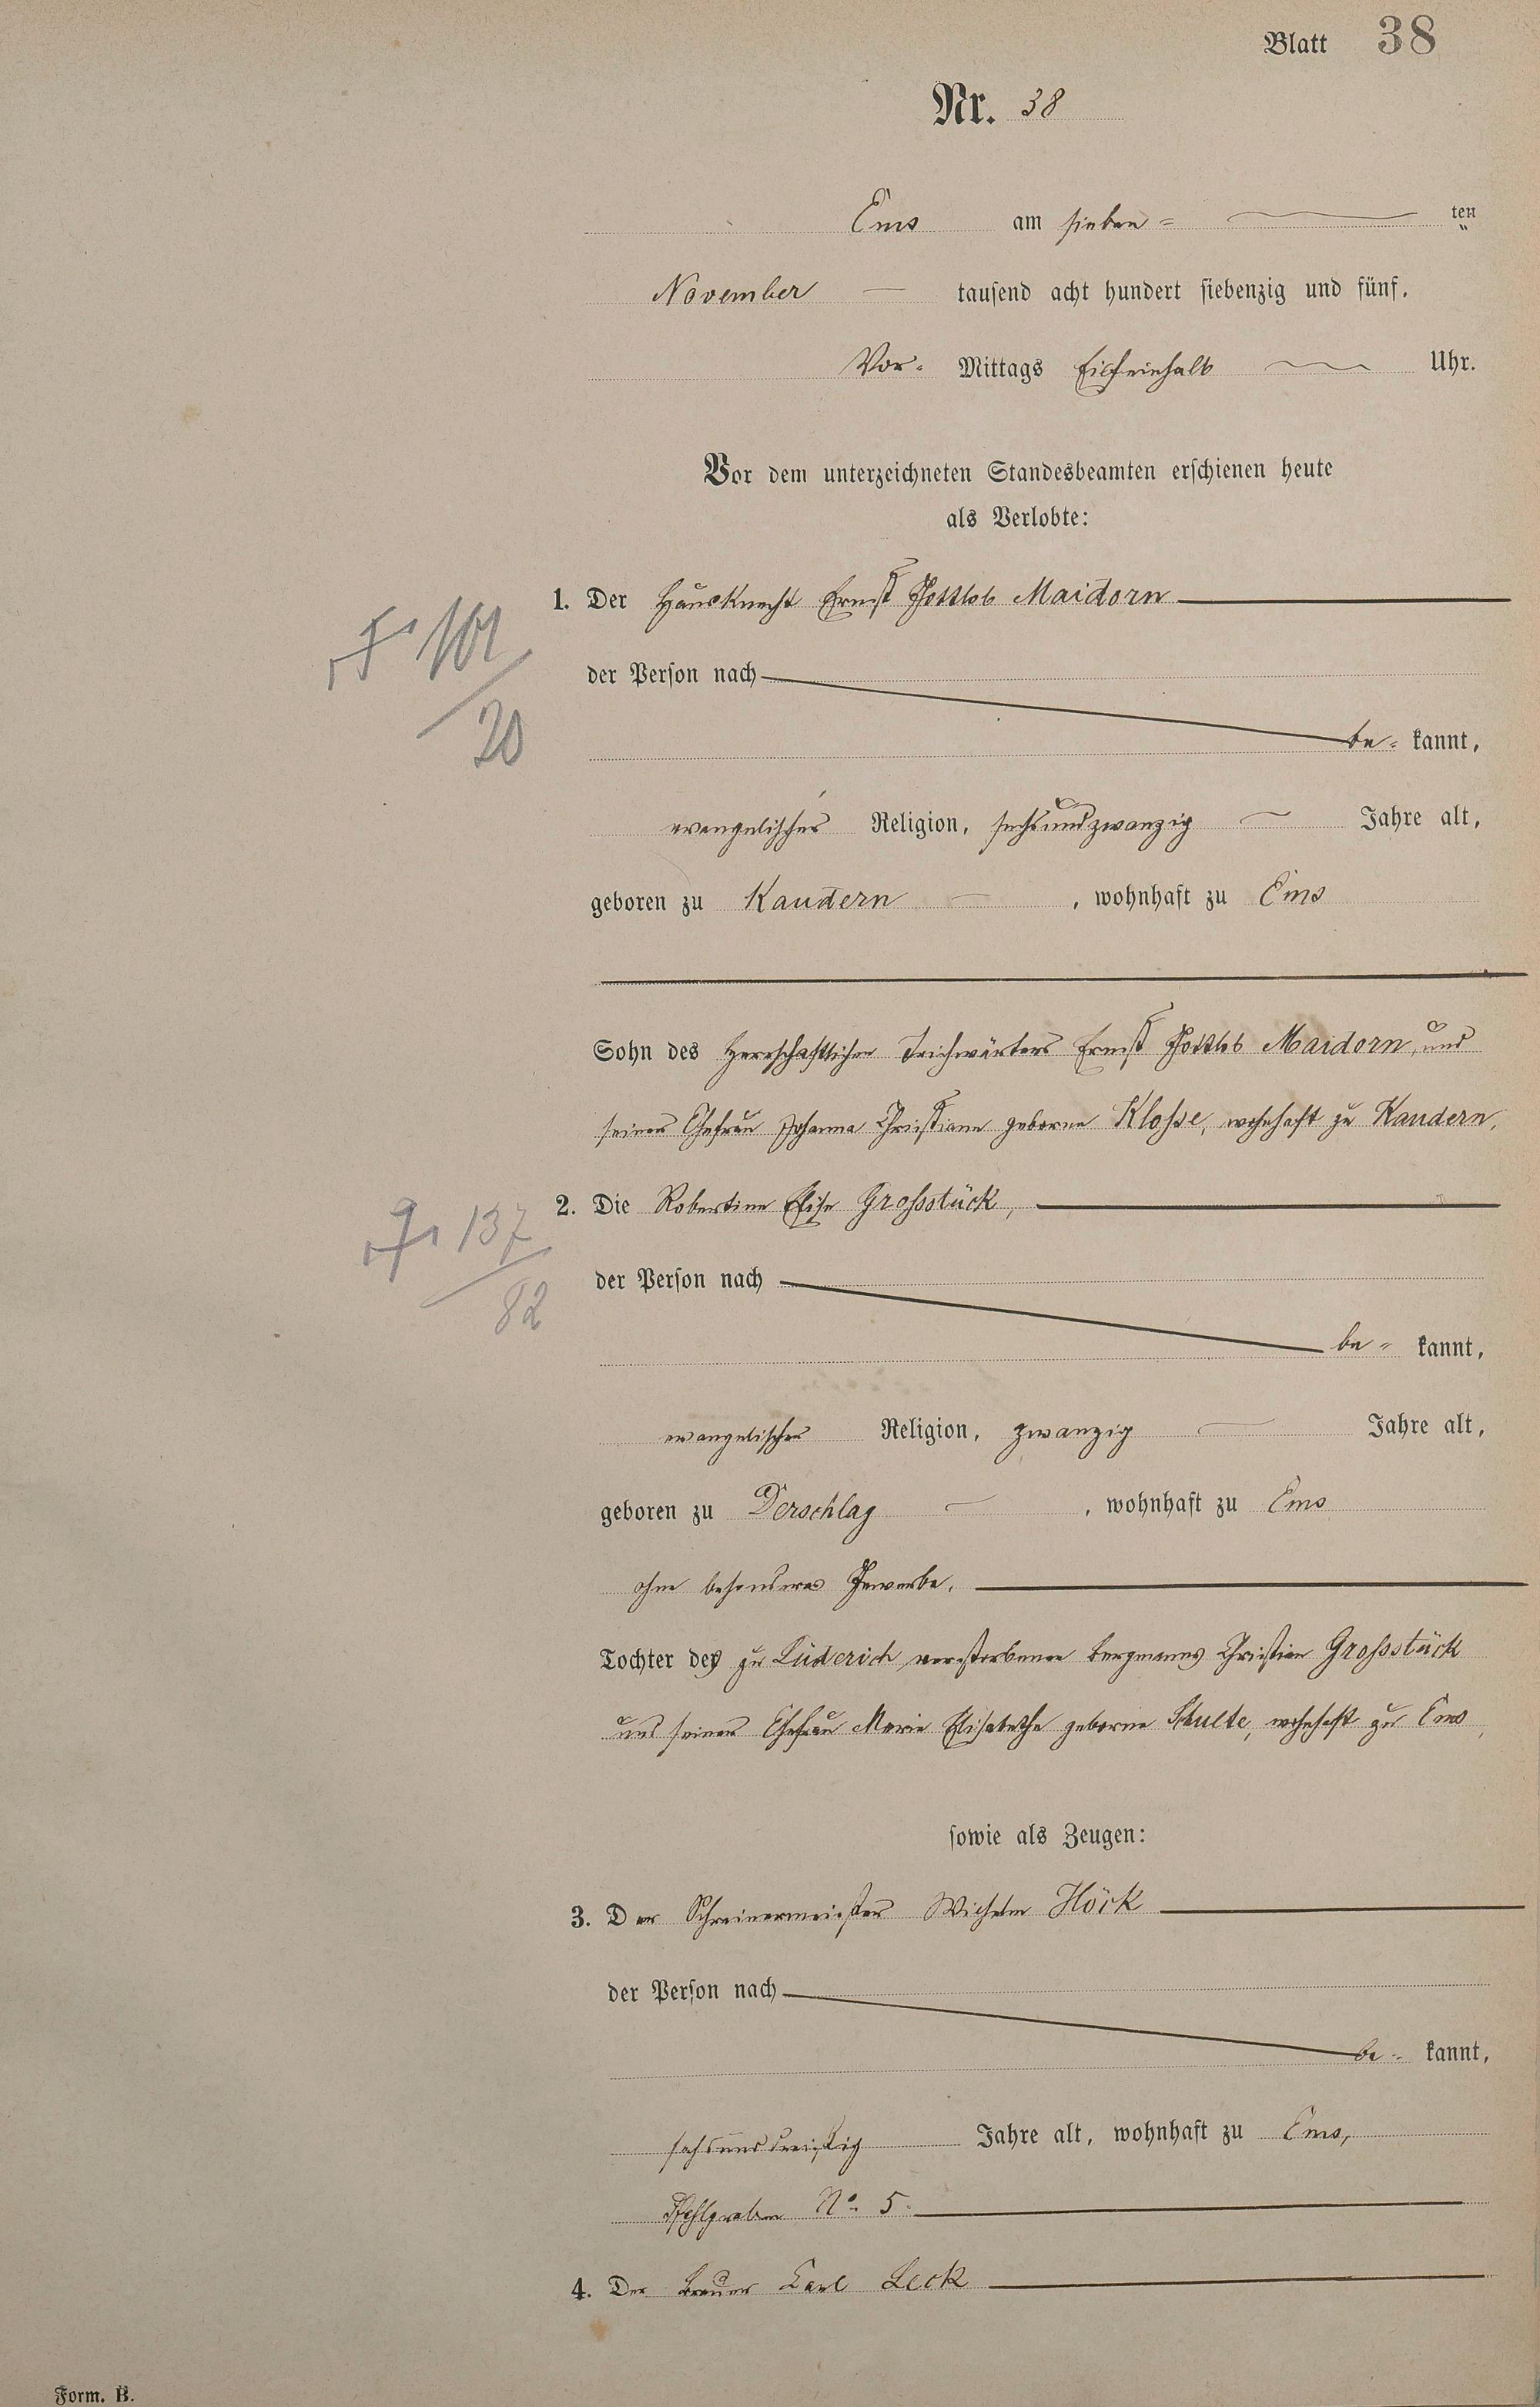 Blatt 38
Nr. 38
Ems am sieben= ten
November tausend acht hundert siebenzig und fünf,
Vor= Mittags Eilfeinhalb Uhr.
Vor dem unterzeichneten Standesbeamten erschienen heute
als Verlobte:
1. Der Hausknecht Ernst Gottlob Maidorn
der Person nach
be= kannt,
evangelischer Religion, sechsundzwanzig Jahre alt,
geboren zu Kaudern, wohnhaft zu Ems
Sohn des Herrschaftlichen Teichwärters Ernst Gottlob Maidorn, und
seiner Ehefrau Johanna Christiane geborne Klosse, wohnhaft zu Kaudern,
2. Die Robertine Elise Grossstück,
der Person nach
be= kannt,
evangelischer Religion, zwanzig Jahre alt,
geboren zu Derschlag, wohnhaft zu Ems
ohne besonderes Gewerbe,
Tochter des zu Lüderich verstorbenen Bergmanns Christian Grossstück
und seiner Ehefrau Marie Elisabethe geborne Schulte, wohnhaft zu Ems,
sowie als Zeugen:
3. Der Schreinermeister Wilhelm Höck
der Person nach
be= kannt,
sechsunddreißig Jahre alt, wohnhaft zu Ems,
Pfahlgraben No. 5.
4. Der Brauer Carl Leck
101
20
137
82
Form. B.